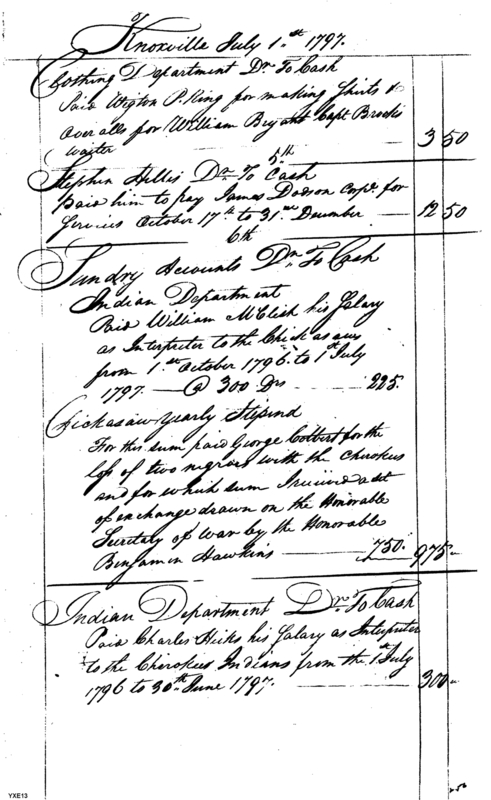 Knoxville July 1.st 1797.
Clothing Department Dr. To Cash
Paid Wigton P. King for making Shirts &
over alls for William Bryant Capt Brocks
waiter 3 50
5th
Stephen Hillis Dr. To Cash
paid him to pay James Dodson Corpl. for
Services October 17th to 31.st December 12 50
6th
Sundry Accounts Drs. To Cash
Indian Department
Paid William McClish his Salary
as Interpreter to the Chickasaws
from 1.st October 1796. to 1st July
1797. @ 300 Drs 225.
Chickasaw Yearly Stipend
For this sum paid George Colbert for the
loss of two negroes with the Cherokees
and for which sum I received a set
of exchange drawn on the Honorable
Secretary of War by the Honorable
Benjamin Hawkins 750. 975
Indian Department Dr. To Cash
Paid Charles Hicks his Salary as Interpreter
to the Cherokees Indians from the 1st July
1796 to 30th June 1797. 300
YXE13